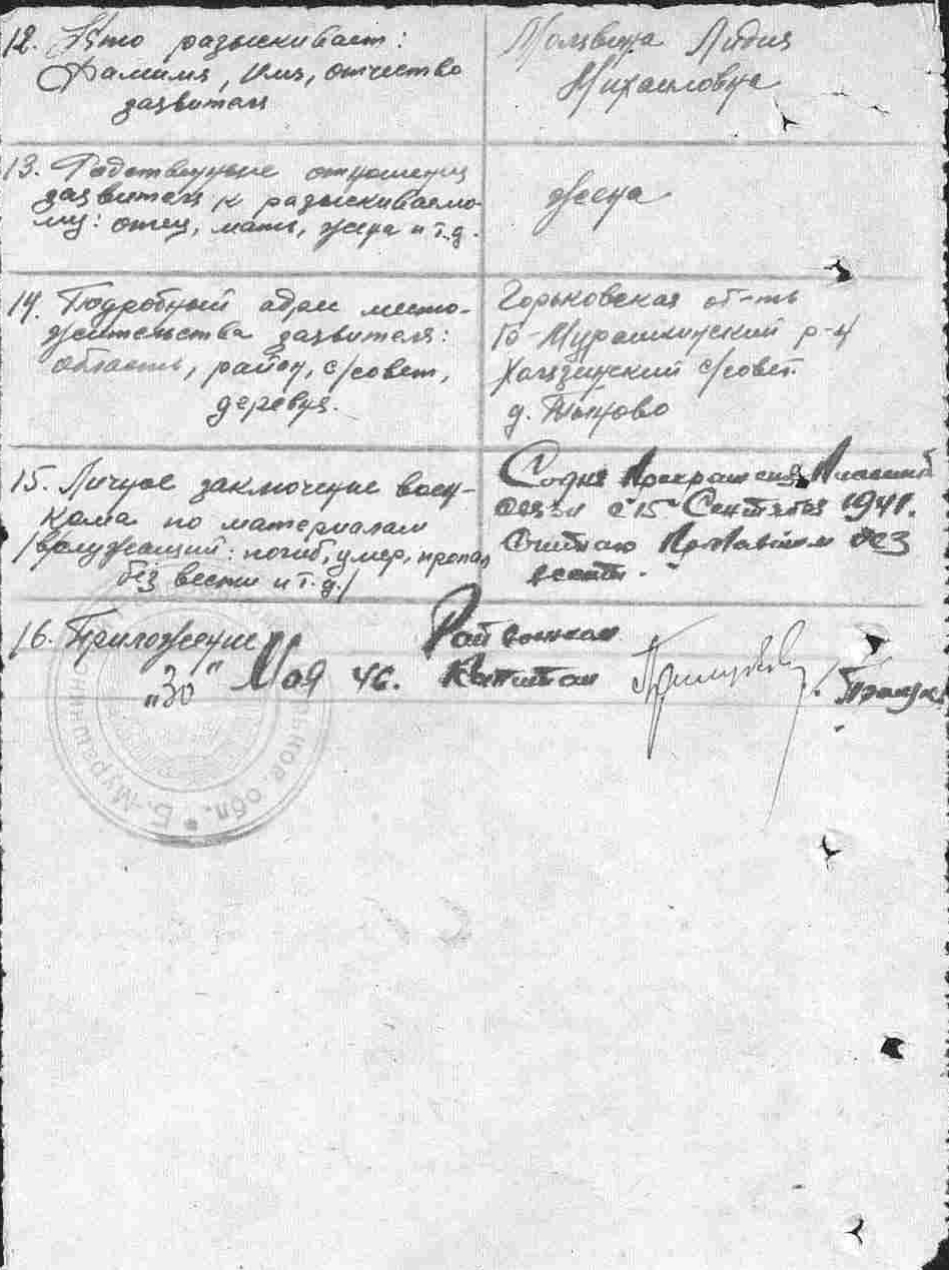 12. Кто разыскивает:
Фамилия, имя, отчество
заявителя
Лидия
Михайловна
13. Родственные отношения
заявителя к разыскиваемо-
му: отец, мать, жена и т.д.
жена
14. Подробный адрес место-
жительства заявителя:
область, район, с/совет,
деревня.
Горьковская об-ть
Б-Мурашкинский р-н
с/совет.
д.
15. Личное заключение воен-
кома по материалам
/вслужеащий: погиб, умер, пропал
без вести и т.д./
Со дня прекращения письмен
связи с 15 Сентября 1941.
Считаю пропавшим без
вести.
16. Приложение
"30" Мая 46.
Райвоенком
Капитан
Б.-Мурашкинс
обл.